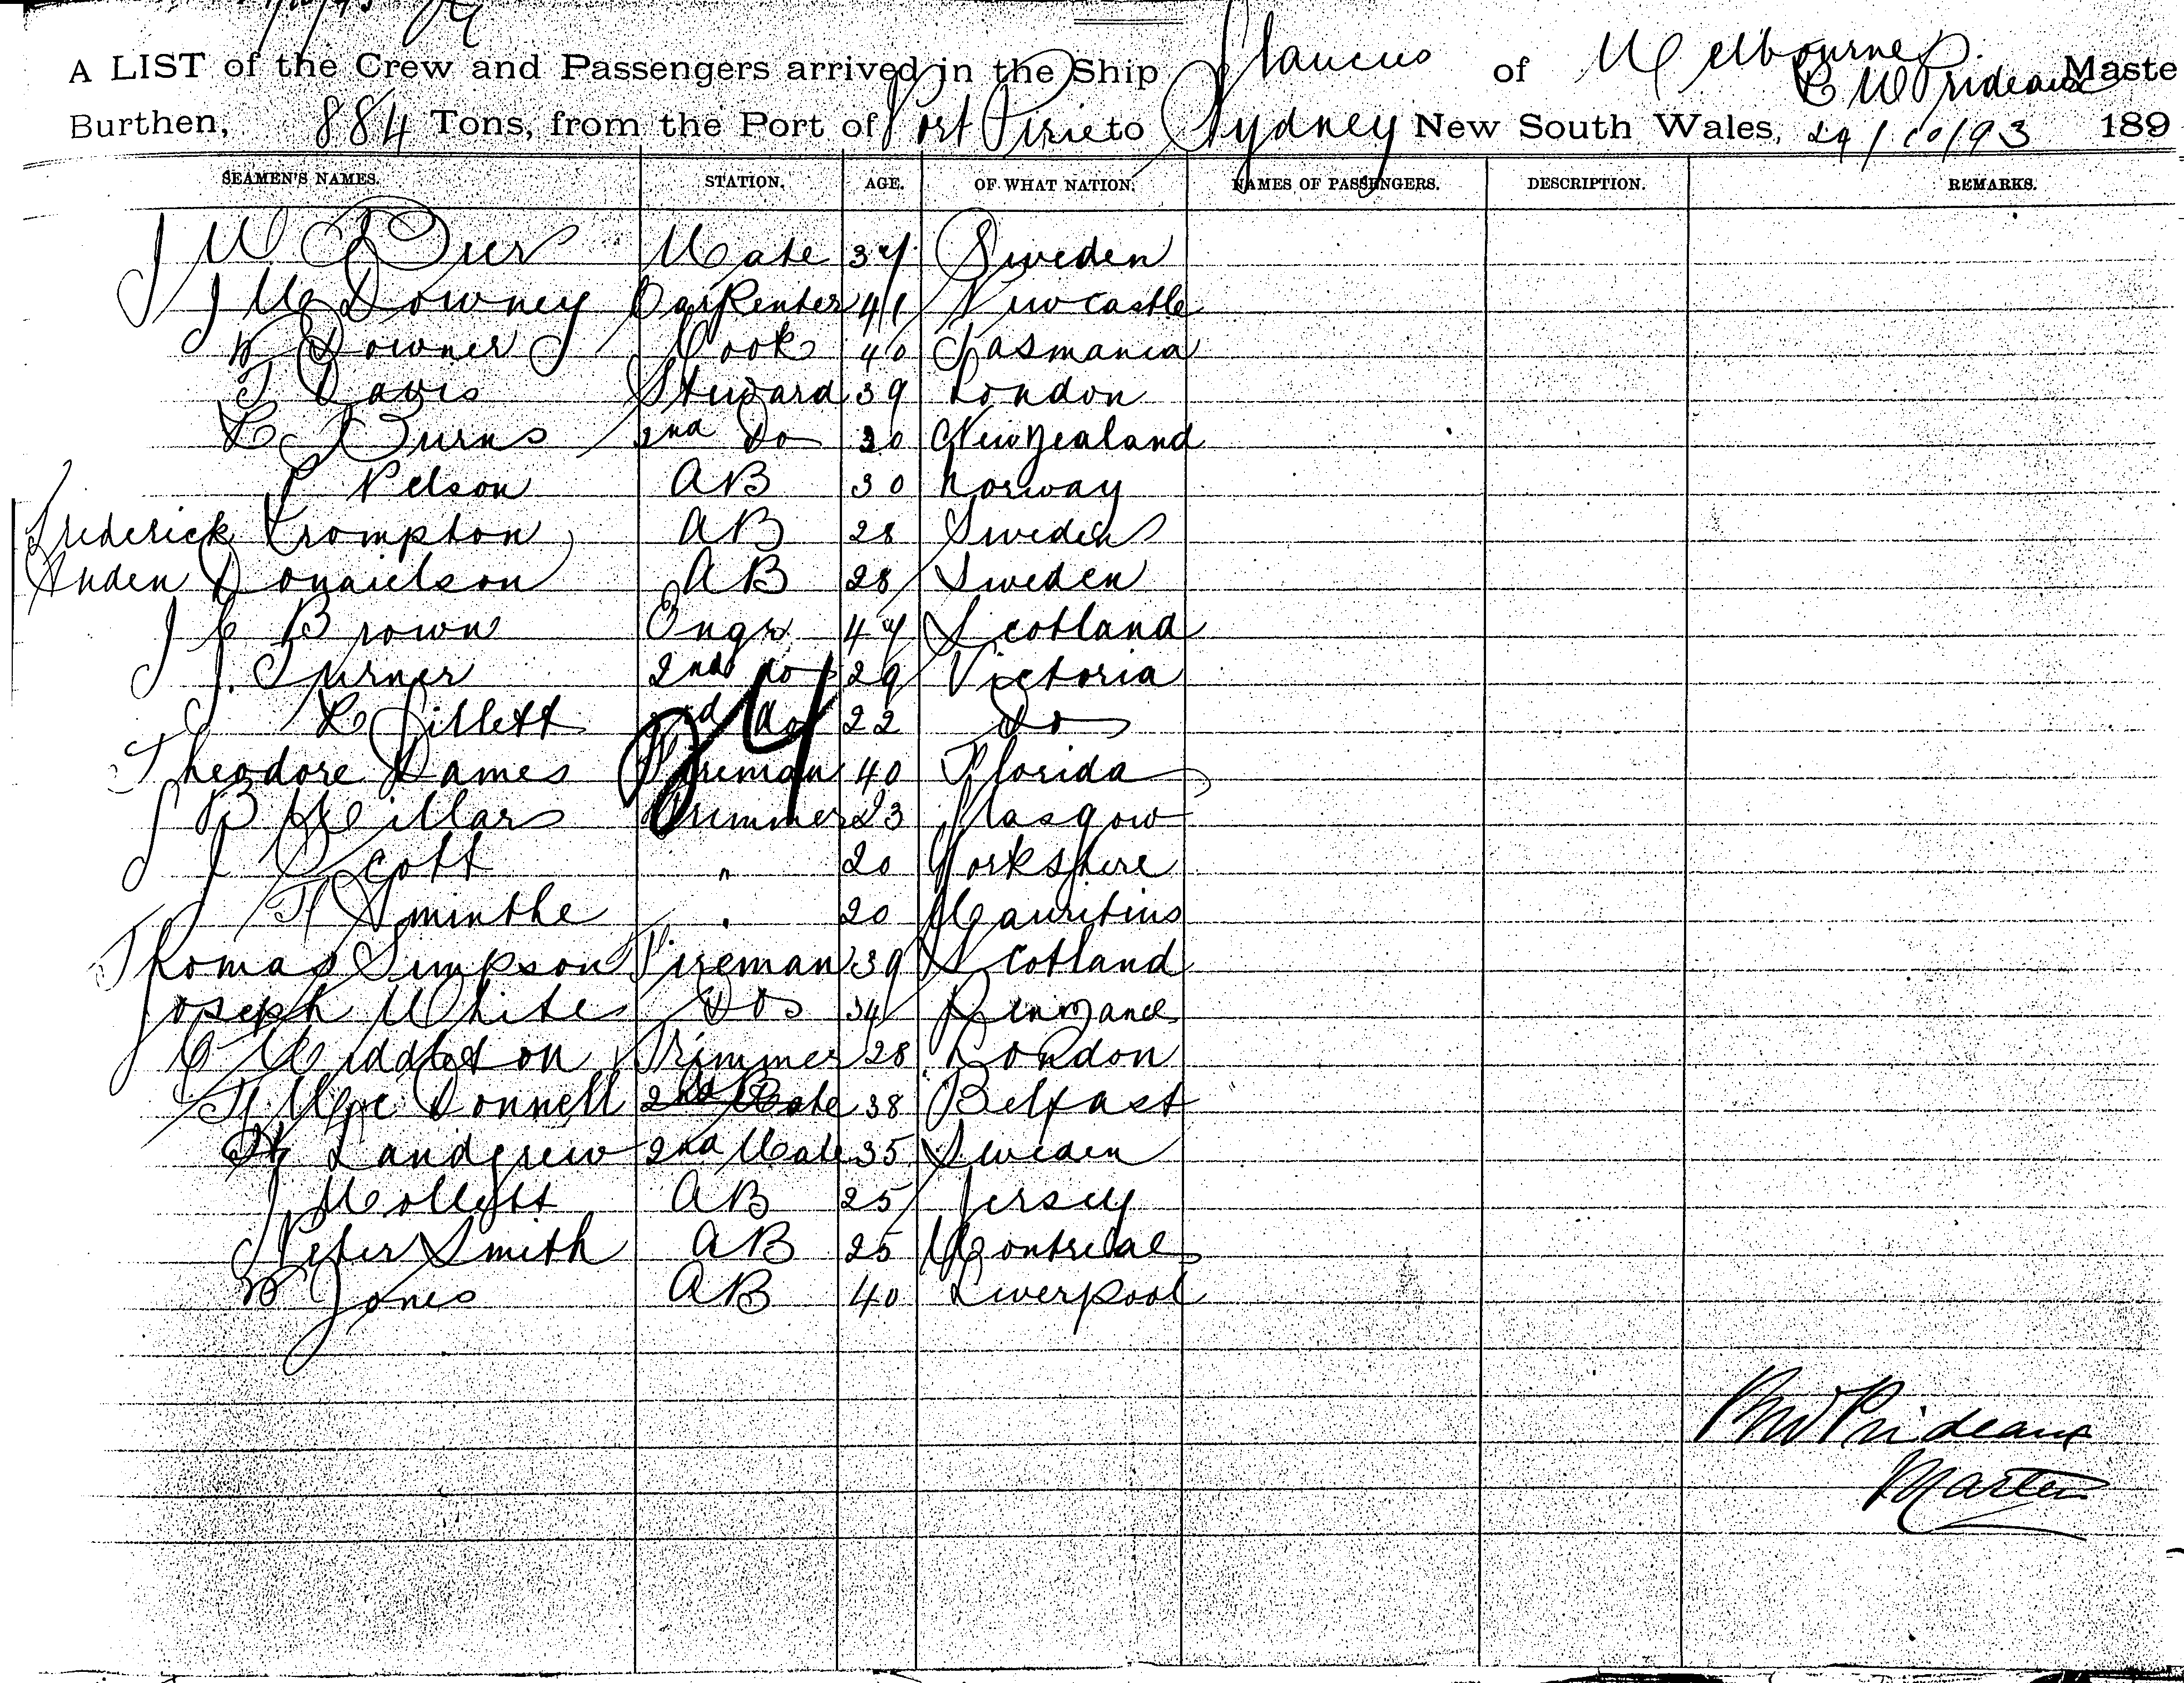 A LIST of the Crew and Passengers arrived in the Ship Glaucus of Melbourne
R W Prideaux Maste
Burthen, 884 Tons, from the Port of Port Pirie to Sydney New South Wales, 24/10/93 189
SEAMEN'S NAMES. STATION. AGE. OF WHAT NATION. NAMES OF PASSENGERS. DESCRIPTION. REMARKS.
J W Mate 37 Sweden
J McDowney Carpenter 41 Newcastle
W Downer Cook 40 Tasmania
T Davis Steward 39 London
Burns 2nd Do 30 New Zealand
P Nelson AB 30 Norway
Frederick Crompton AB 28 Sweden
Donaielson AB 28 Sweden
J C Brown Engr 47 Scotland
J. Turner 2nd do 29 Victoria
R Gillett do 22 Do
Theodore Dames Fireman 40 Florida
B Millar Trimmer 23 Glasgow
J Scott " 20 Yorkshire
H Sminthe " 20 Mauritius
Thomas Simpson Fireman 39 Scotland
Joseph White Do 34 Penzance
C Middleton Trimmer 28 London
H McDonnell 2nd Mate 38 Belfast
Landgrew 2nd Mate 35 Sweden
J Mollett AB 25 Jersey
Peter Smith AB 25 Montreal
W Jones AB 40 Liverpool
24
RW Prideaux
Master